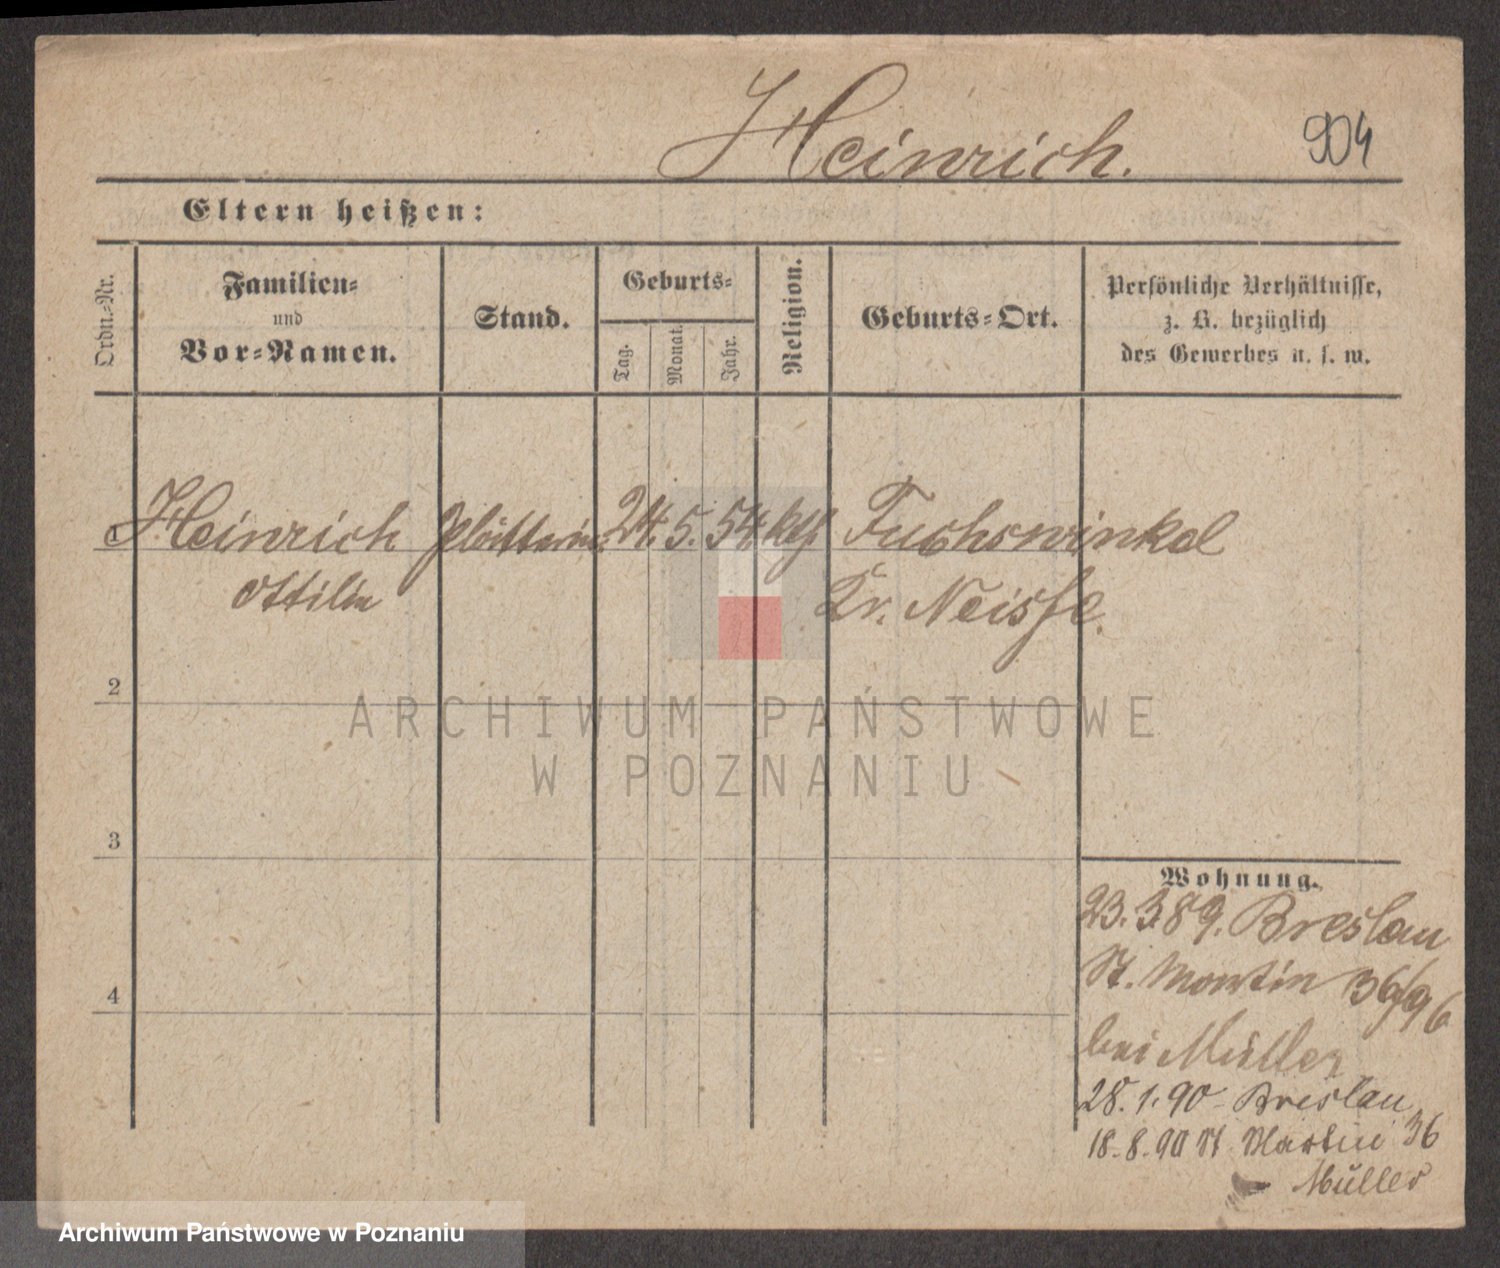 Heinrich.
904
Eltern heißen:
Ordn.-Nr.
Familien-
und
Vor-Namen.
Stand.
Geburts-
Tag.
Monat.
Jahr.
Religion.
Geburts-Ort.
Persönliche Verhältnisse,
z. B. bezüglich
des Gewerbes u. s. w.
1 Heinrich Plätterin 24. 5. 54. kth. Fuchswinkel
Ottilie Kr. Neisse.
2
ARCHIWUM PAŃSTWOWE
W POZNANIU
3
4
Wohnung.
23. 3. 89. Breslau
St. Martin 36/96
bei Müller
28. 1. 90 - Breslau
18. 8. 90 St Martin 36
Müller
Archiwum Państwowe w Poznaniu